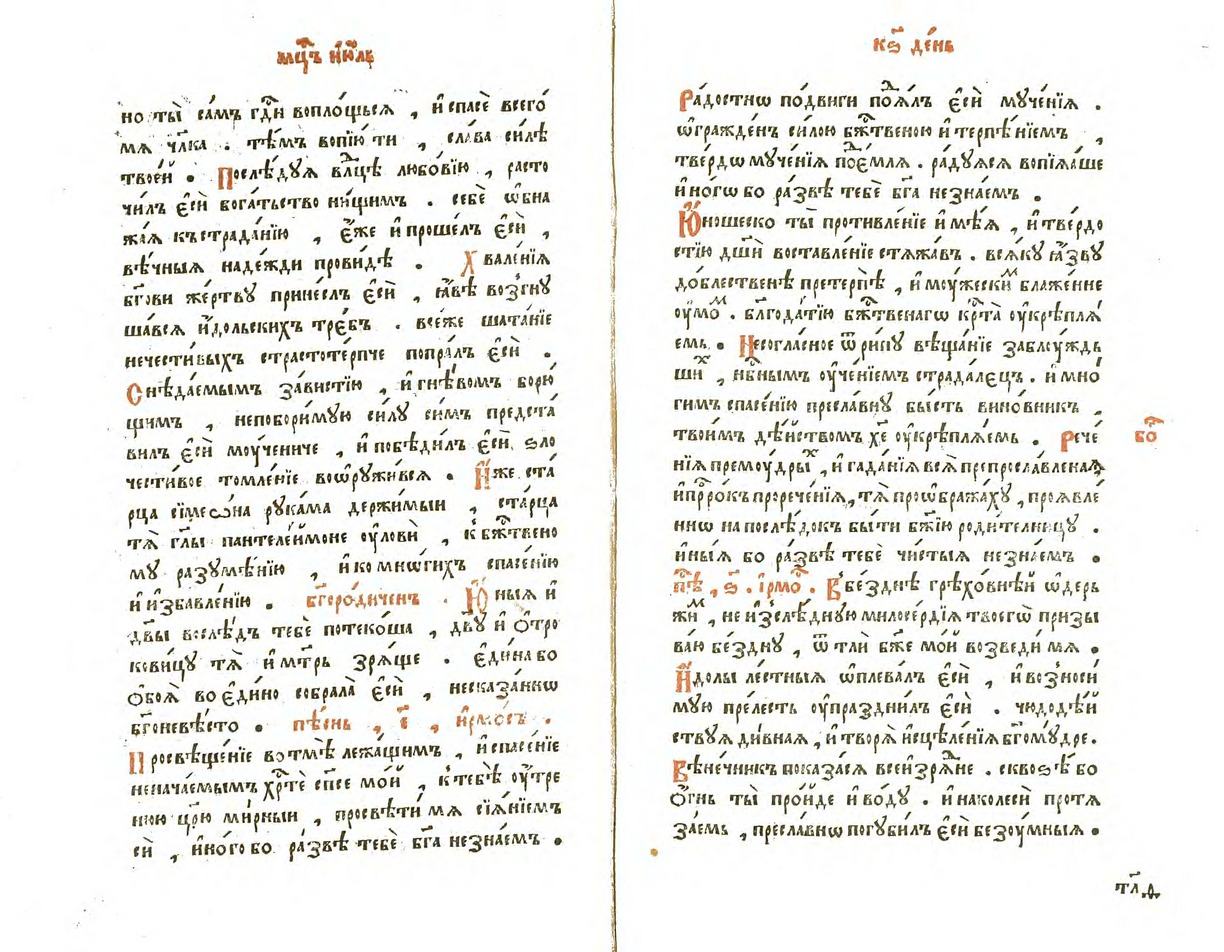 мцъ їюль
но ты̀ са́мъ гдⷭ҇и вопло́щься , и҆ спасѐ всего̀
мѧ чл҃ка . тѣ́мъ вопїю́ ти , сла́ва си́лѣ
твое́й . Послѣ́дуѧ влⷣцѣ любо́вїю , расто
чи́лъ є҆сѝ бога́тьство ни́щимъ . себѐ ѡ҆бна
жа́ѧ къ страда́нїю , є҆́же и҆ проше́лъ є҆сѝ ,
вѣ́чныѧ наде́жди прови́дѣ . Хвале́нїѧ
бг҃ови же́ртву прине́слъ є҆сѝ , ꙗ҆́вѣ возгну
ша́всѧ и҆́дольскихъ тре́бъ . все́же шата́нїе
нечести́выхъ страстоте́рпче попра́лъ є҆сѝ .
Снѣда́емымъ за́вистїю , и҆ гнѣ́вомъ борю́
щимъ , непобори́мую си́лу си́мъ предста́
вилъ є҆сѝ моу́чениче , и҆ побѣди́лъ є҆сѝ ѕло
чести́вое томле́нїе воѡ҆ружи́всѧ . И҆́же ста́
рца сїмеѡ́на рука́ма держи́мыи , ста́рца
тѧ̀ гл҃ы пантелеи́моне оу҆лови̂ , к бжⷭ҇твено
му разумѣ́нїю , и҆ ко мнѡ́гихъ спасе́нїю
и҆ и҆збавле́нїю . бг҃оро́диченъ . Ю҆́ныѧ и҆
дв҃ы вослѣ́дъ тебѐ потеко́ша , дв҃у и҆ ѻ҆тро
кови́цу тѧ̀ и҆ мт҃рь зрѧ́ще . є҆ди́на бо
ѻ҆боѧ̀ во є҆ди́но собра́ла є҆сѝ , несказа́ннѡ
бг҃оневѣ́сто . пѣ́снь , є҃ , и҆рмо́съ .
Просвѣще́нїе во тмѣ̀ лежа́щимъ , и҆ спасе́нїе
ненача́емымъ хрⷭ҇тѐ сп҃се мо́й , к тебѣ̀ оу҆́тре
нюю црⷭ҇ю ми́рныи , просвѣти́ мѧ сїѧ́нїемъ
сѝ , и҆но́го бо ра́звѣ тебѐ бг҃а незна́емъ .
кѕ҃ де́нь
Ра́достнѡ по́двиги под̾ѧ́лъ є҆сѝ муче́нїѧ .
ѡ҆гражде́нъ си́лою бжⷭ҇твеною и҆ терпѣ́нїемъ ,
тве́рдѡ муче́нїѧ под̾е́млѧ . ра́дуѧсѧ вопїѧ́ше
и҆но́гѡ бо ра́звѣ тебѐ бг҃а незна́емъ .
Ю҆́ношеско ты̀ противле́нїе и҆мѣ́ѧ , и҆ тве́рдо
стїю дш҃и воставле́нїе стѧжа́въ . всѧ́ку ꙗ҆́зву
до́блественѣ претерпѣ̀ , и҆ моу́жескиⷨ блаже́нне
оу҆моⷨ . благода́тїю бжⷭ҇твенагѡ крⷭ҇та̀ оу҆крѣплѧ́
емь . Несогла́сное ѿри́нꙋ вѣща́нїе заблоу́ждь
шиⷯ , нбⷭ҇нымъ оу҆че́нїемъ страда́лєцъ . и҆ мно́
гимъ спасе́нїю пресла́вну бы́сть вино́вникъ ,
твои́мъ дѣ́йствомъ хе҃ оу҆крѣплѧ́емь . Рече́ бо҃
нїѧ премоу́дрыⷯ , и҆ гада́нїѧ всѧ̀ препросла́вленаѧ ,
и҆ прⷪ҇рокъ прорече́нїѧ , тѧ̀ проѡ҆бража́ху , проѧвле́
ннѡ напослѣ́докъ бы́ти бж҃їю роди́телницу .
и҆ны́ѧ бо ра́звѣ тебѐ чи́стыѧ незна́емъ .
пѣⷭ҇ , ѕ҃ . і҆рмоⷭ҇ . В бе́зднѣ грѣхо́внѣй ѡ҆держ
жиⷨ , не и҆зслѣ́дную милосе́рдїѧ твоегѡ̀ призы
ва́ю бе́здну , ѿ тлѝ бж҃е мо́й возведи́ мѧ .
И҆́долы ле́стныѧ ѡ҆плева́лъ є҆сѝ , и҆ возноси́
мую пре́лесть оу҆праздни́лъ є҆сѝ . чюдодѣ́й
ствуѧ ди́внаѧ , и҆ творѧ̀ и҆сцѣле́нїѧ бг҃ому́дре .
Вѣне́чникъ показа́сѧ всеи҆зрѧ́дне . сквоѕѣ́ бо
ѻ҆́гнь ты̀ про́йде и҆ во́ду . и҆ на колесѝ протѧ
за́емь , пресла́внѡ погуби́лъ є҆сѝ безоу́мныѧ .
тл҃д